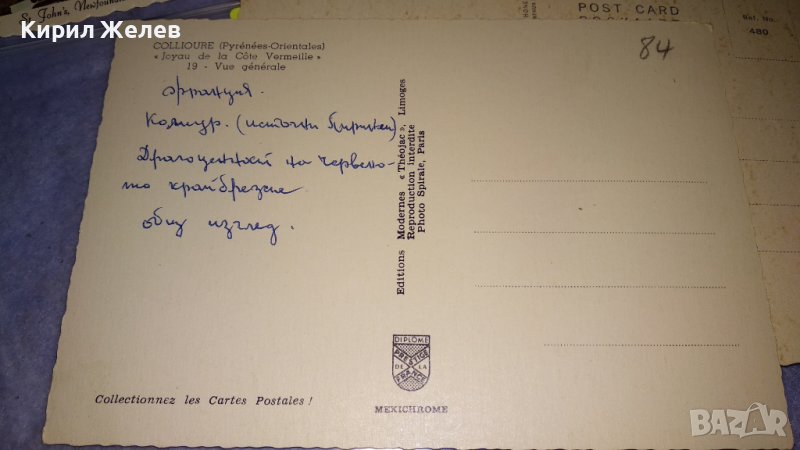 Кирил Желев
St. John's, Newfoundland
POST CARD
Ref. No.
480
84
COLLIOURE (Pyrénées-Orientales)
« Joyau de la Côte Vermeille »
19 - Vue générale
Франция.
Колиур. (източни Пиринеи)
Драгоценност на червено-
то крайбрежие
общ изглед.
Editions Modernes « Théojac », Limoges
Reproduction Interdite
Photo Spirale, Paris
DIPLOME
PRESTIGE
DE LA
FRANCE
MEXICHROME
Collectionnez les Cartes Postales !
BAZAR
bg